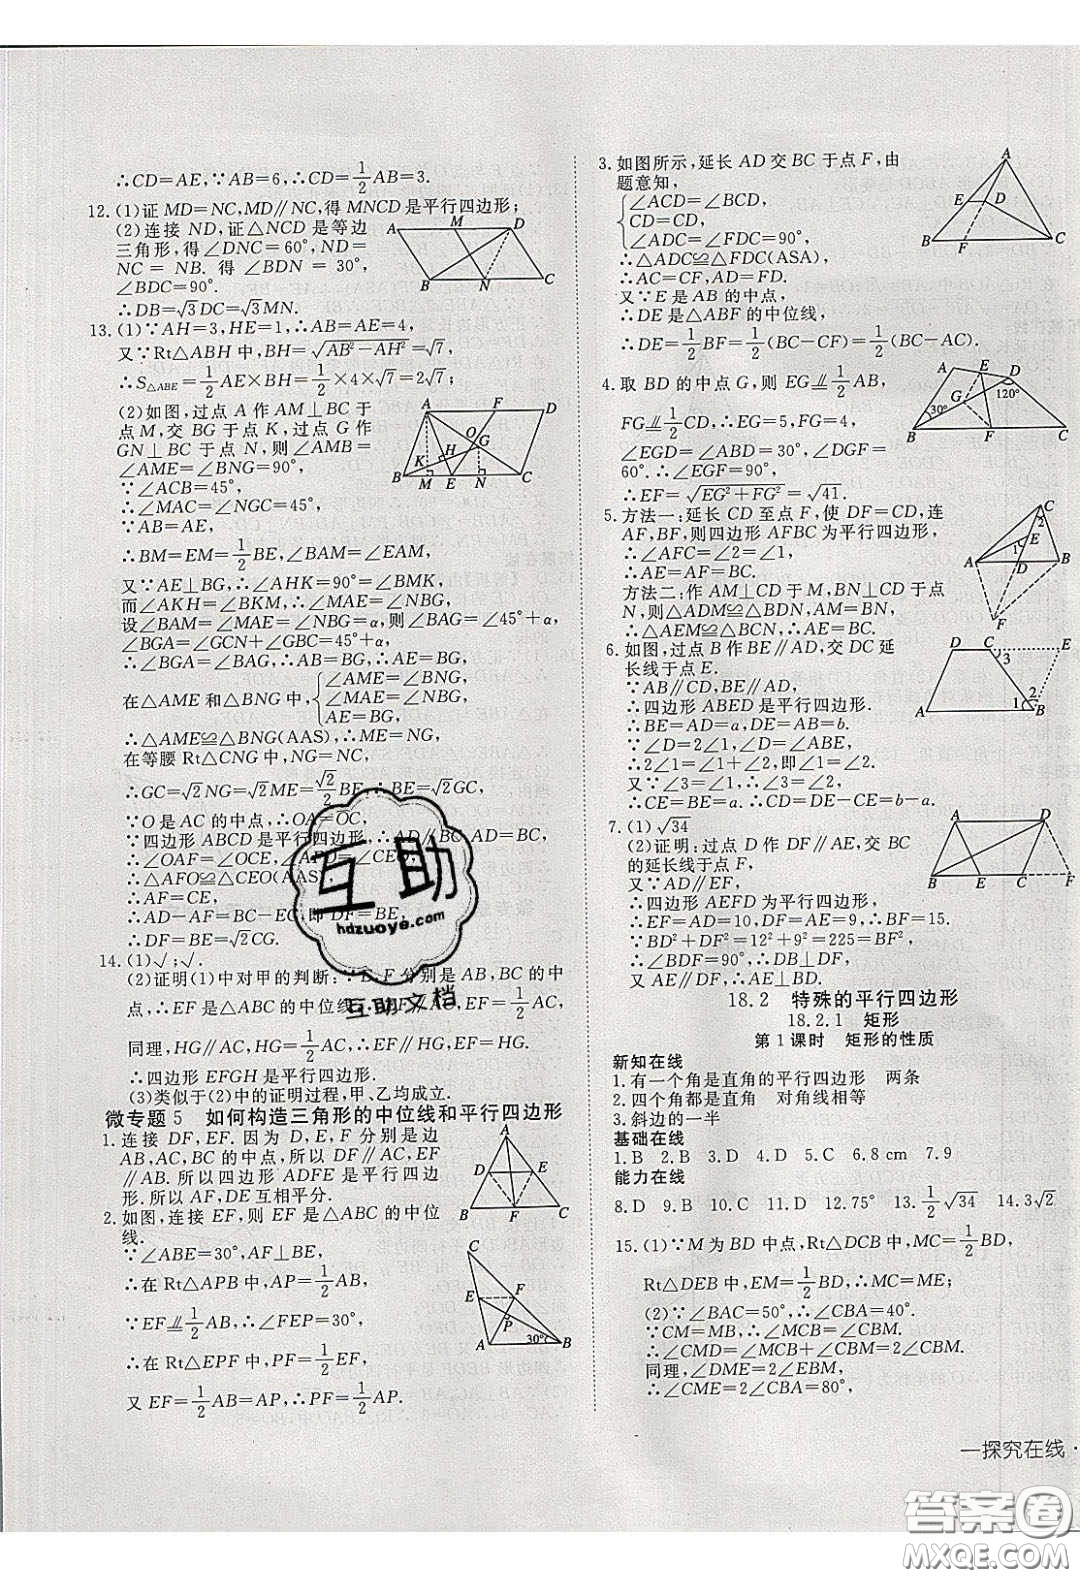 ∴CD=AE,∵AB=6,∴CD=1/2AB=3.
12.(1)证MD=NC,MD∥NC,得MNCD是平行四边形;
(2)连接ND,证△NCD是等边
三角形,得∠DNC=60°,ND=
NC=NB.得∠BDN=30°,
∠BDC=90°.
∴DB=√3DC=√3MN.
13.(1)∵AH=3,HE=1,∴AB=AE=4,
又∵Rt△ABH中,BH=√(AB²-AH²)=√7,
∴S△ABE=1/2AE×BH=1/2×4×√7=2√7;
(2)如图,过点A作AM⊥BC于
点M,交BG于点K,过点G作
GN⊥BC于点N,则∠AMB=
∠AME=∠BNG=90°,
∵∠ACB=45°,
∴∠MAC=∠NGC=45°,
∵AB=AE,
∴BM=EM=1/2BE,∠BAM=∠EAM,
又∵AE⊥BG,∴∠AHK=90°=∠BMK,
而∠AKH=∠BKM,∴∠MAE=∠NBG,
设∠BAM=∠MAE=∠NBG=α,则∠BAG=45°+α,
∠BGA=∠GCN+∠GBC=45°+α,
∴∠BGA=∠BAG,∴AB=BG,∴AE=BG,
在△AME和△BNG中,
∠AME=∠BNG,
∠MAE=∠NBG,
AE=BG,
∴△AME≌△BNG(AAS),∴ME=NG,
在等腰Rt△CNG中,NG=NC,
∴GC=√2NG=√2ME=√2/2BE,∴BE=√2GC,
∵O是AC的中点,∴OA=OC,
∵四边形ABCD是平行四边形,∴AD∥BC,AD=BC,
∴∠OAF=∠OCE,∠AFO=∠CEO,
∴△AFO≌△CEO(AAS),
∴AF=CE,
∴AD-AF=BC-EC,即DF=BE,
∴DF=BE=√2CG.
14.(1)√;√.
(2)证明(1)中对甲的判断:∵E、F分别是AB,BC的中
点,∴EF是△ABC的中位线,∴EF∥AC,EF=1/2AC,
同理,HG∥AC,HG=1/2AC,∴EF∥HG,EF=HG,
∴四边形EFGH是平行四边形.
(3)类似于(2)中的证明过程,甲、乙均成立.
微专题5 如何构造三角形的中位线和平行四边形
1.连接DF,EF.因为D,E,F分别是边
AB,BC,AC的中点,所以DF∥AC,EF
∥AB.所以四边形ADFE是平行四边
形.所以AF,DE互相平分.
2.如图,连接EF,则EF是△ABC的中位
线.
∵∠ABE=30°,AF⊥BE,
∴在Rt△APB中,AP=1/2AB,
∵EF⫽1/2AB,∴∠FEP=30°,
∴在Rt△EPF中,PF=1/2EF,
又EF=1/2AB=AP,∴PF=1/2AP.
3.如图所示,延长AD交BC于点F,由
题意知,
∠ACD=∠BCD,
CD=CD,
∠ADC=∠FDC=90°,
∴△ADC≌△FDC(ASA),
∴AC=CF,AD=FD.
又∵E是AB的中点,
∴DE是△ABF的中位线,
∴DE=1/2BF=1/2(BC-CF)=1/2(BC-AC).
4.取BD的中点G,则EG⫽1/2AB,
FG⫽1/2CD,∴EG=5,FG=4,
∠EGD=∠ABD=30°,∠DGF=
60°.∴∠EGF=90°.
∴EF=√(EG²+FG²)=√41.
5.方法一:延长CD至点F,使DF=CD,连
AF,BF,则四边形AFBC为平行四边形.
∴∠AFC=∠2=∠1,
∴AE=AF=BC.
方法二:作AM⊥CD于M,BN⊥CD于点
N,则△ADM≌△BDN,AM=BN.
∴△AEM≌△BCN,∴AE=BC.
6.如图,过点B作BE∥AD,交DC延
长线于点E.
∵AB∥CD,BE∥AD,
∴四边形ABED是平行四边形.
∴BE=AD=a,DE=AB=b.
∵∠D=2∠1,∠D=∠ABE,
∴∠ABE=2∠1,即∠1=∠2.
又∵∠3=∠1,∴∠2=∠3.
∴CE=BE=a.∴CD=DE-CE=b-a.
7.(1)√34
(2)证明:过点D作DF∥AE,交BC
的延长线于点F,
又∵AD∥EF,
∴四边形AEFD为平行四边形.
∴EF=AD=5,DF=AE=9,∴BF=15.
∵BD²+DF²=12²+9²=225=BF²,
∴∠BDF=90°,∴BD⊥DF,
又AE∥DF,∴AE⊥BD.
18.2 特殊的平行四边形
18.2.1 矩形
第1课时 矩形的性质
新知在线
1.有一个角是直角的平行四边形 两条
2.四个角都是直角 对角线相等
3.斜边的一半
基础在线
1.B 2.B 3.D 4.D 5.C 6.8 cm 7.9
能力在线
8.D 9.B 10.C 11.D 12.75° 13.1/2√34 14.3√2
15.(1)∵M为BD中点,Rt△DCB中,MC=1/2BD,
Rt△DEB中,EM=1/2BD,∴MC=ME;
(2)∵∠BAC=50°,∴∠CBA=40°.
∵CM=MB,∴∠MCB=∠CBM,
∴∠CMD=∠MCB+∠CBM=2∠CBM.
同理,∠DME=2∠EBM,
∴∠CME=2∠CBA=80°,
一探究在线·
互助
hdzuoye.com
互助文档
答案圈
MXQE.COM